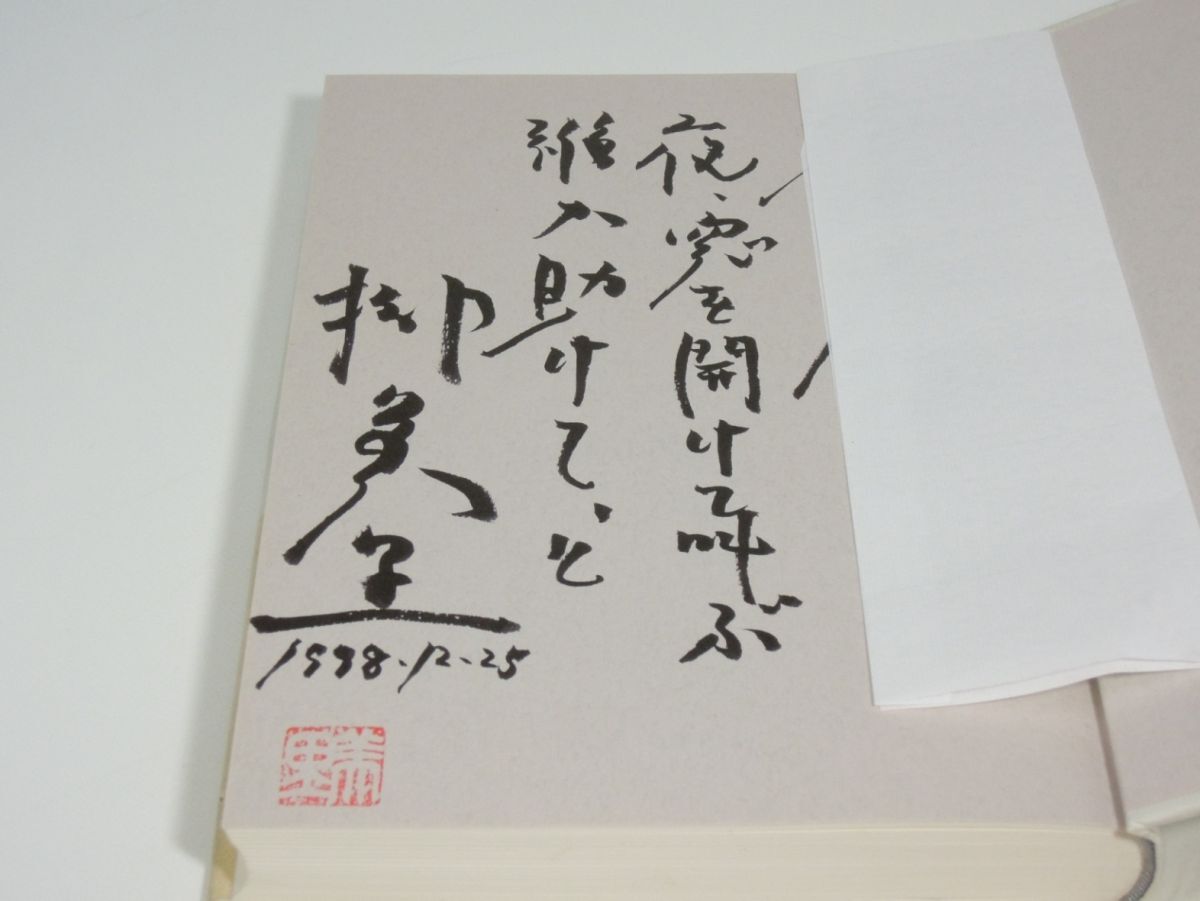 夜、窓を開けて叫ぶ
誰か助けて、と
柳美里
1998.12.25